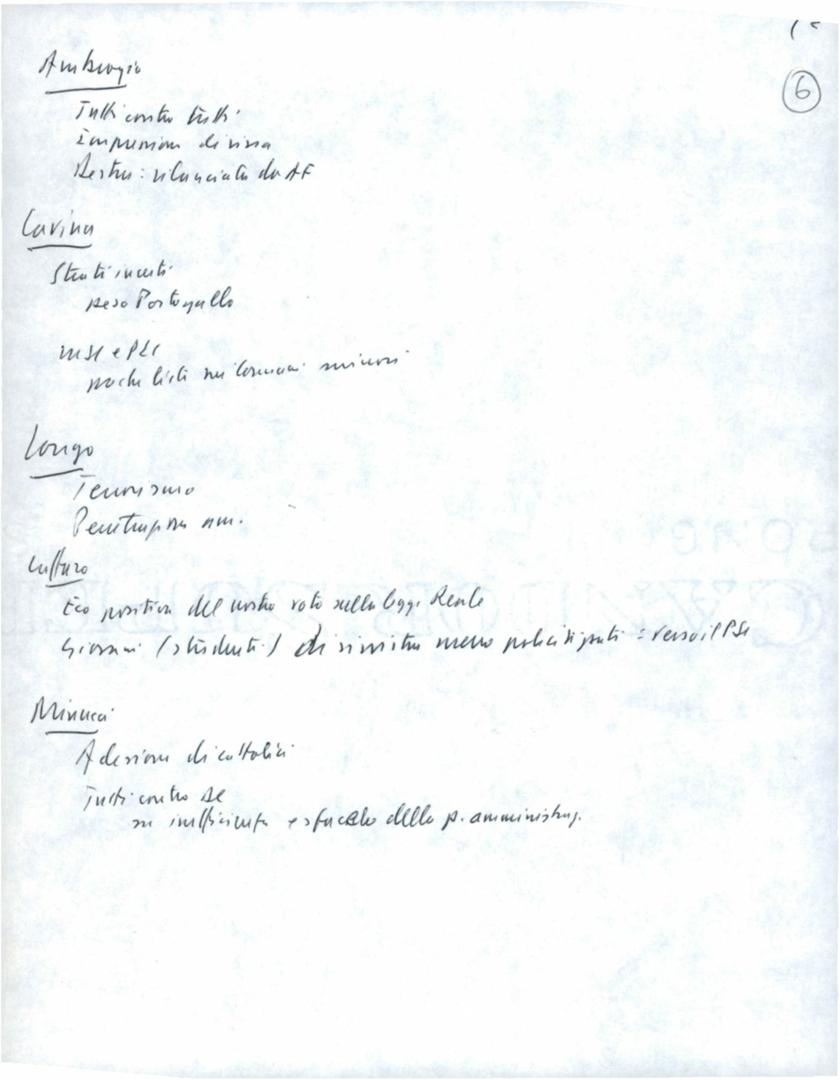 6
Ambrogio
Tutti contro tutti
Impressione di rissa
Destra: rilanciata da AF
Cavina
Strati incerti
peso Portogallo
MSI e PLI
poche liste nei Comuni minori
Longo
Terrorismo
Penetrazione am.
Cuffaro
Eco positiva del nostro voto sulla legge Reale
Giovani (studenti) di sinistra meno politicizzati: verso il PSI
Minucci
Adesioni di cattolici
Tutti contro
su inefficienza e sfacelo della p. amministraz.